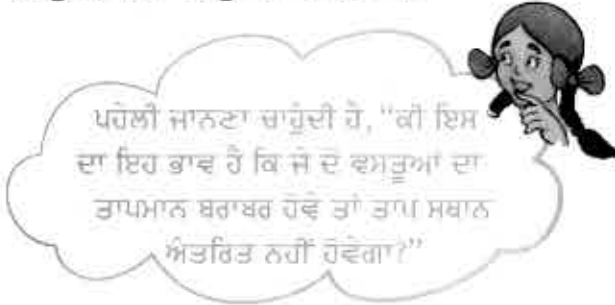 ਪਹੇਲੀ ਜਾਨਣਾ ਚਾਹੁੰਦੀ ਹੈ, "ਕੀ ਇਸ
ਦਾ ਇਹ ਭਾਵ ਹੈ ਕਿ ਜੇ ਦੋ ਵਸਤੂਆਂ ਦਾ
ਤਾਪਮਾਨ ਬਰਾਬਰ ਹੋਵੇ ਤਾਂ ਤਾਪ ਸਥਾਨ
ਅੰਤਰਿਤ ਨਹੀਂ ਹੋਵੇਗਾ?"